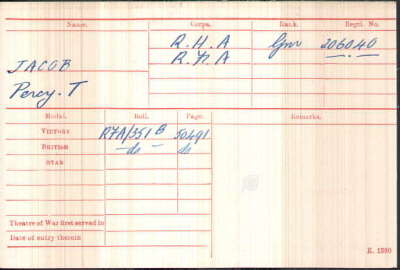 Name. Corps. Rank. Regtl. No.
R.H.A Gnr 206040
JACOB R.F.A
Percy. T
Medal. Roll. Page. Remarks.
VICTORY RFA/351 B 50491
BRITISH -do- do
STAR
Theatre of War first served in
Date of entry therein
K. 1380